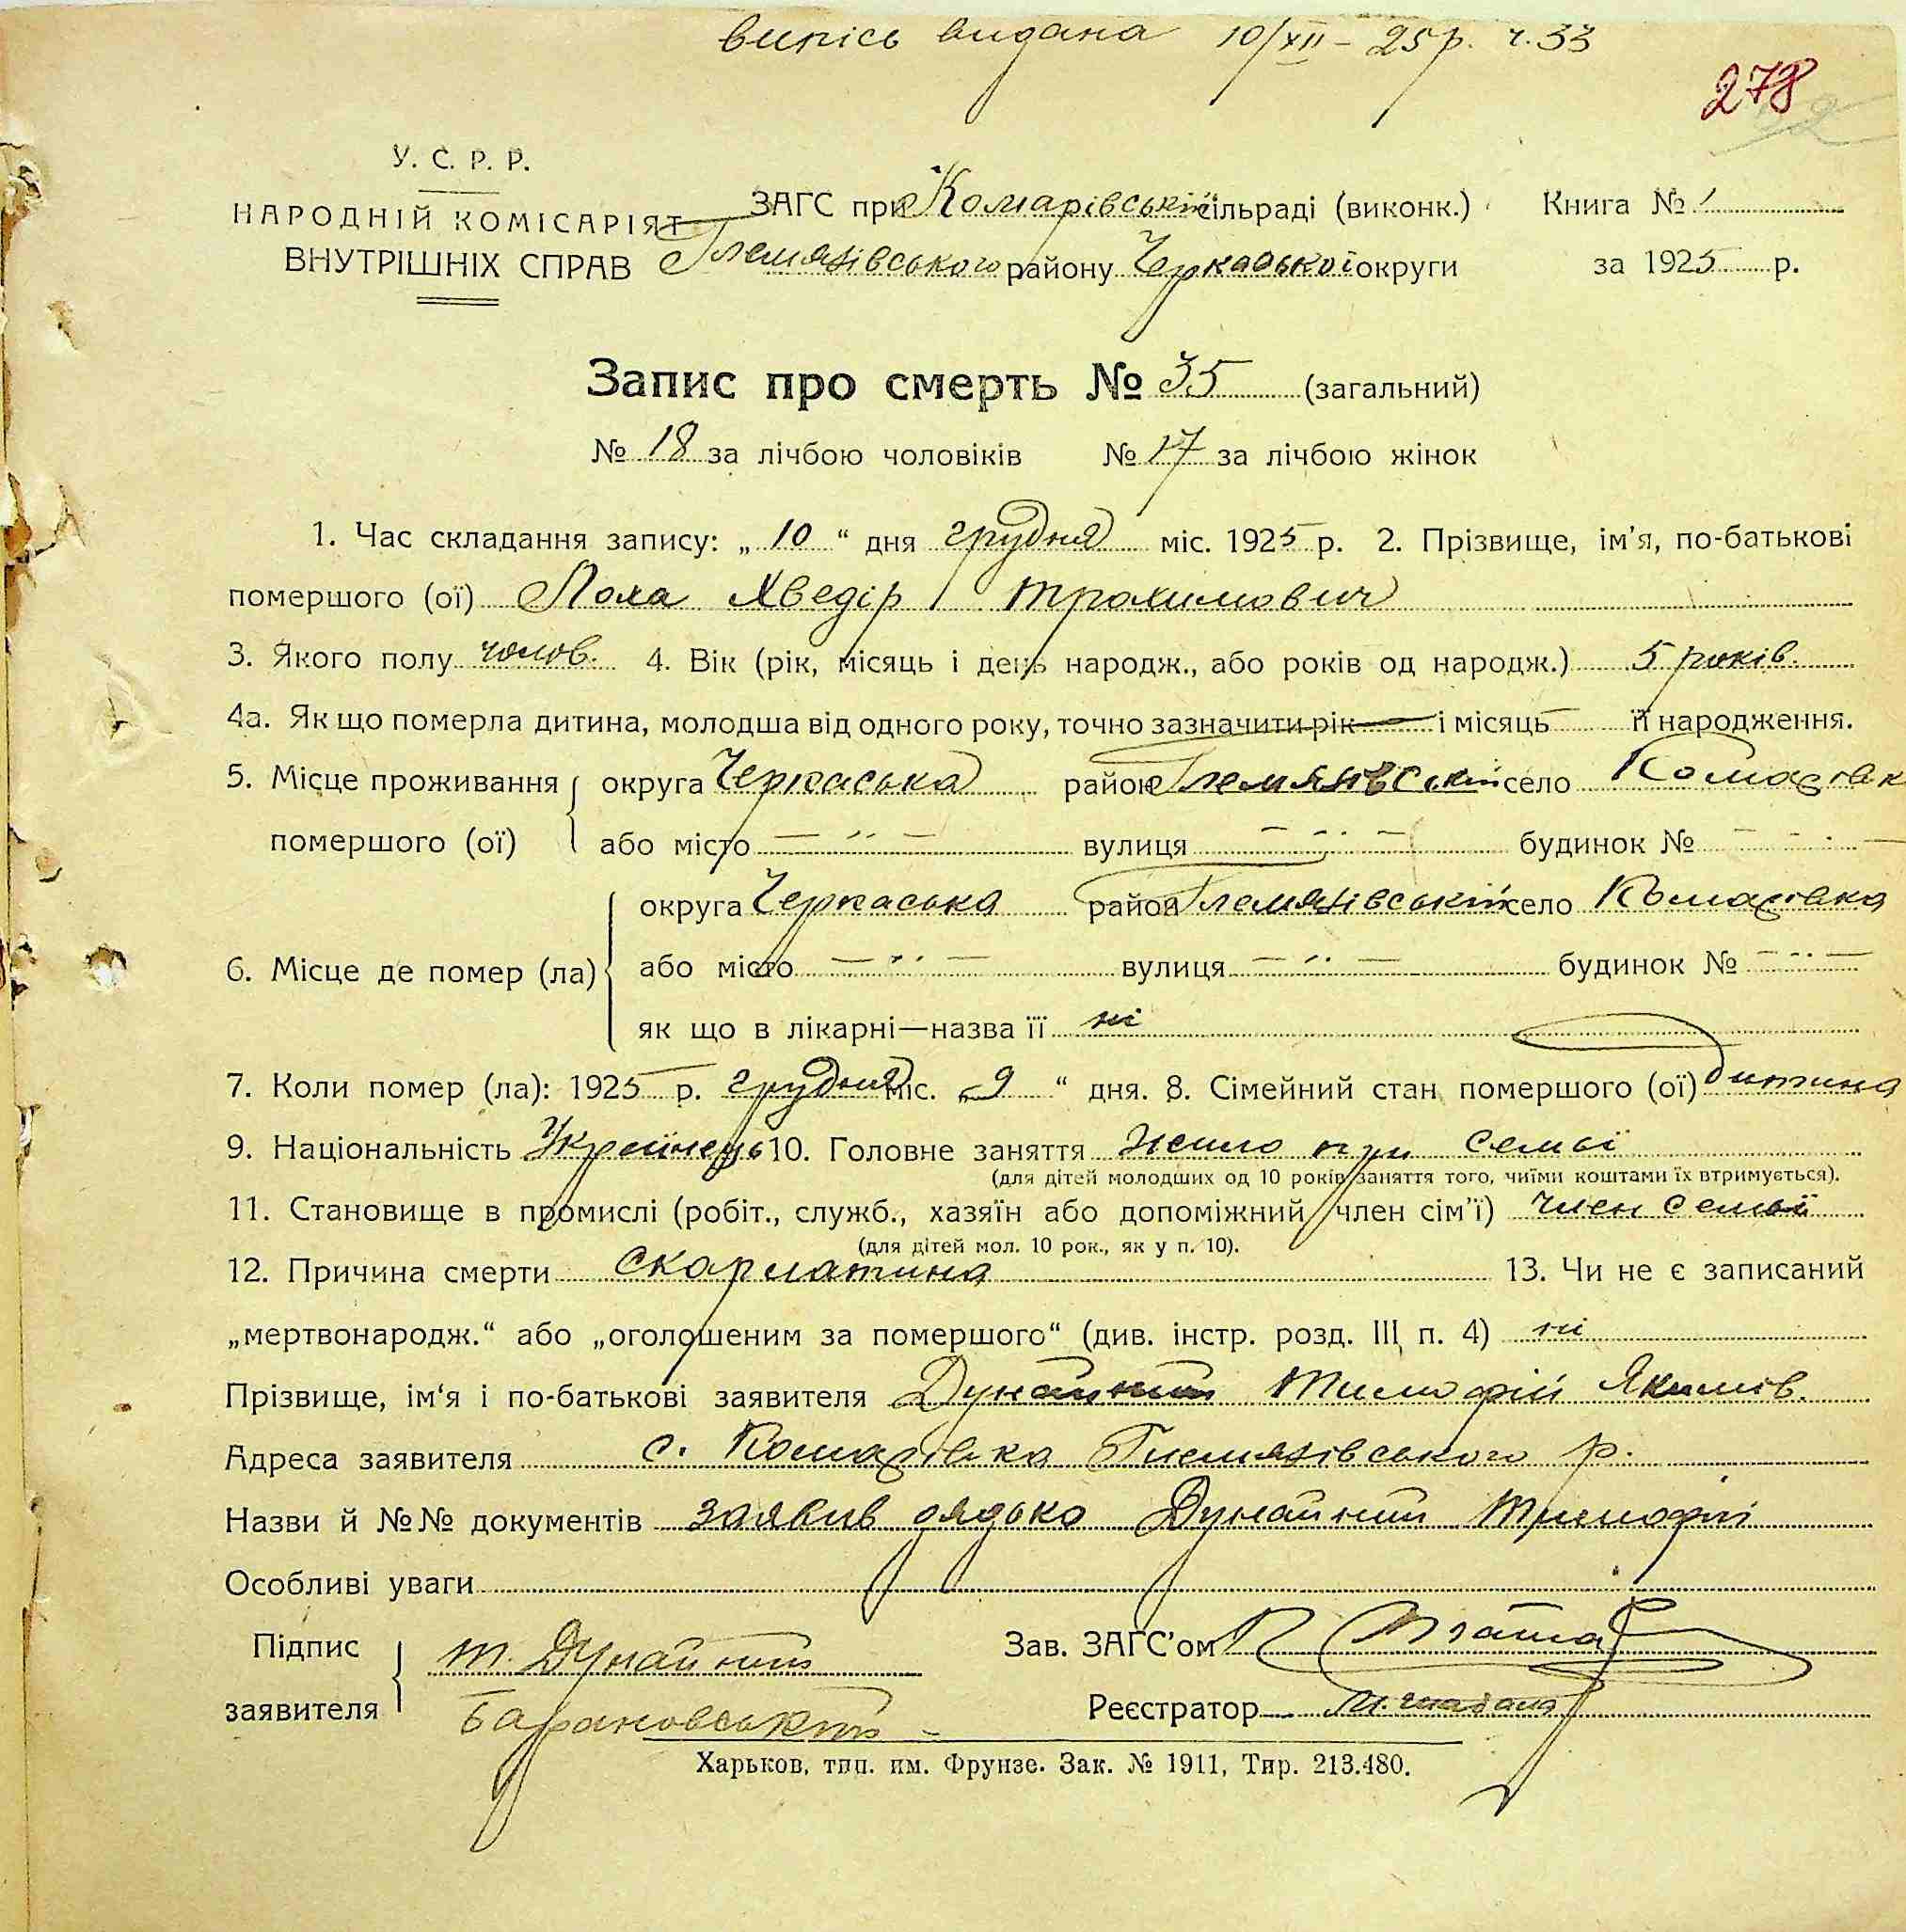 випісь видана 10/XII - 25 р. ч. 33
278
У. С. Р. Р.
НАРОДНІЙ КОМІСАРІЯТ
ВНУТРІШНІХ СПРАВ
ЗАГС при Комарівській сільраді (виконк.)
Глемязівського району Черкаської округи
Книга № 1
за 1925 р.
Запис про смерть № 35 (загальний)
№ 18 за лічбою чоловіків № 17 за лічбою жінок
1. Час складання запису: „ 10 “ дня грудня міс. 1925 р. 2. Прізвище, ім'я, по-батькові
помершого (ої) Лоха Хведір Трохимович
3. Якого полу чолов. 4. Вік (рік, місяць і день народж., або років од народж.) 5 років.
4а. Як що померла дитина, молодша від одного року, точно зазначити рік — і місяць — її народження.
5. Місце проживання округа Черкаська район Глемязівський село Комарівк
помершого (ої) або місто — " — вулиця — " — будинок № — " —
округа Черкаська район Глемязівський село Комарівка
6. Місце де помер (ла) або місто — " — вулиця — " — будинок № — " —
як що в лікарні—назва її ні
7. Коли помер (ла): 1925 р. грудня міс. „ 9 “ дня. 8. Сімейний стан помершого (ої) дитина
9. Національність Українець 10. Головне заняття жило при семьї
(для дітей молодших од 10 років заняття того, чиїми коштами їх втримується).
11. Становище в промислі (робіт., служб., хазяїн або допоміжний член сім'ї) член семьї
(для дітей мол. 10 рок., як у п. 10).
12. Причина смерти скарлатина 13. Чи не є записаний
„мертвонародж.“ або „оголошеним за помершого“ (див. інстр. розд. III п. 4) ні
Прізвище, ім'я і по-батькові заявителя Дунайний Тимофій Якимів.
Адреса заявителя с. Комарівка Глемязівського р.
Назви й №№ документів заявив дядько Дунайний Тимофій
Особливі уваги
Підпис
заявителя
Т. Дунайний
Барановський
Зав. ЗАГС'ом
Реєстратор
Харьков, тип. им. Фрунзе. Зак. № 1911, Тир. 213.480.